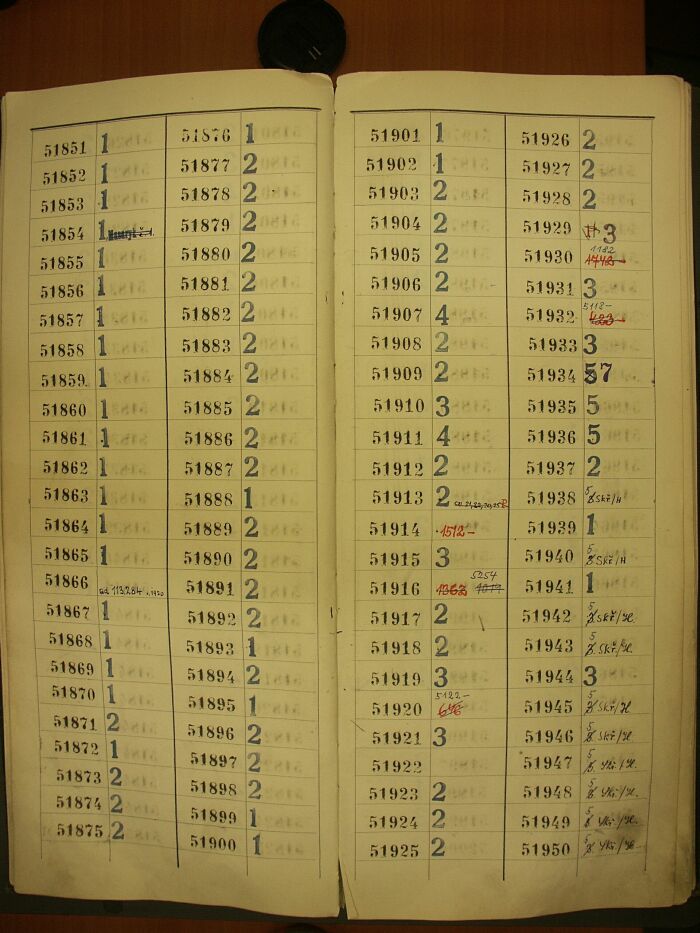 51851 1
51852 1
51853 1
51854 1
51855 1
51856 1
51857 1
51858 1
51859 1
51860 1
51861 1
51862 1
51863 1
51864 1
51865 1
51866
51867 1
51868 1
51869 1
51870 1
51871 2
51872 1
51873 2
51874 2
51875 2
51876 1
51877 2
51878 2
51879 2
51880 2
51881 2
51882 2
51883 2
51884 2
51885 2
51886 2
51887 2
51888 1
51889 2
51890 2
51891 2
51892 2
51893 1
51894 2
51895 1
51896 2
51897 2
51898 2
51899 1
51900 1
51901 1
51902 1
51903 2
51904 2
51905 2
51906 2
51907 4
51908 2
51909 2
51910 3
51911 4
51912 2
51913 2
51914 1512-
51915 3
51916 1362 5254
51917 2
51918 2
51919 3
51920 5122-
51921 3
51922
51923 2
51924 2
51925 2
51926 2
51927 2
51928 2
51929 3
51930 1182
51931 3
51932 5118-
51933 3
51934 7
51935 5
51936 5
51937 2
51938 5 Skř/H
51939 1
51940 5 Skř/H
51941 1
51942 5 Skř/H.
51943 5 Skř/H.
51944 3
51945 5 Skř/H
51946 5 Skř/H.
51947 5 Skř/H.
51948 5 Skř/H.
51949 5 Skř/H.
51950 5 Skř/H